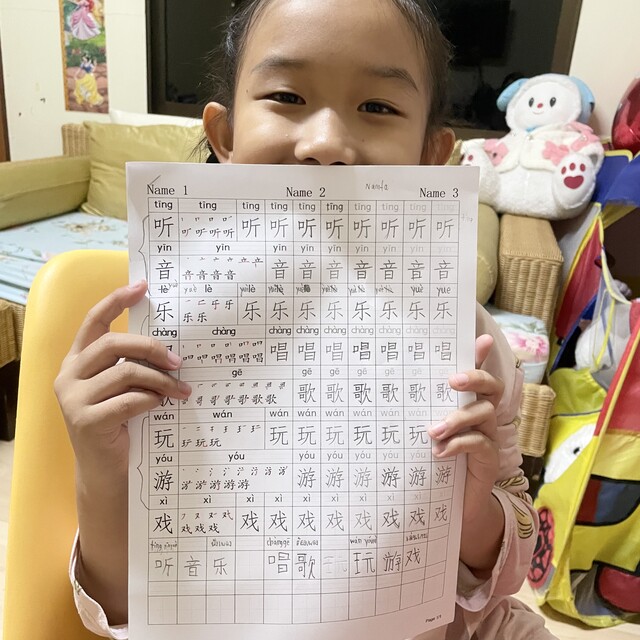 Name 1 Name 2 Nanfa Name 3
tīng tīng tīng tīng tīng tīng tīng tīng
听 听 听 听 听 听 听 听 听 听 听
yīn yīn
音 音 音 音 音 音 音 音 音 音 音 音
lè lè
乐 乐 乐 乐 乐 乐 乐 乐 乐 乐
chàng chàng chàng chàng chàng chàng chàng chàng chàng
唱 唱 唱 唱 唱 唱 唱
gē gē gē gē gē gē gē
歌 歌 歌 歌 歌 歌
wán wán wán wán wán wán wán wán wán
玩 玩 玩 玩 玩 玩 玩 玩 玩
yóu yóu yóu yóu yóu yóu yóu yóu
游 游 游 游 游 游 游
xì xì xì xì xì xì xì xì xì xì
戏 戏 戏 戏 戏 戏 戏 戏 戏
听 音 乐 唱 歌 玩 玩 游 戏
Page: 1/1